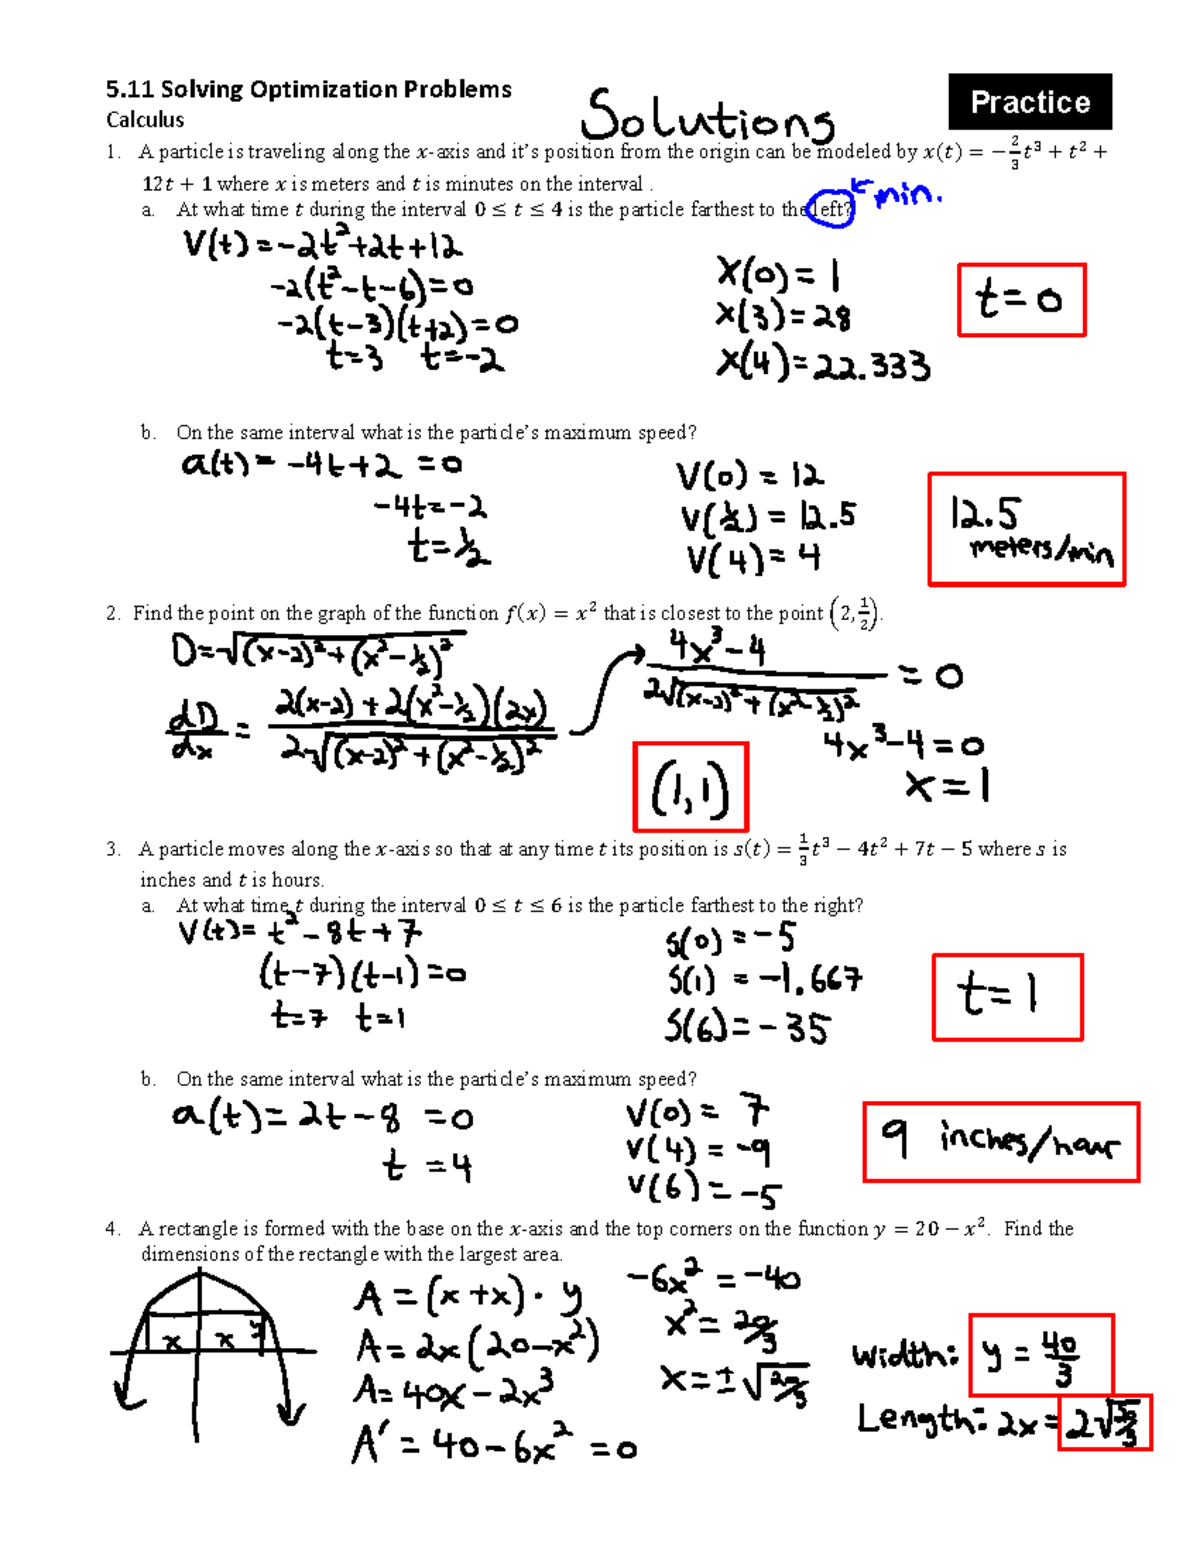 5.11 Solving Optimization Problems
Calculus
Solutions
Practice
1. A particle is traveling along the x-axis and it's position from the origin can be modeled by x(t) = −2/3 t³ + t² +
12t + 1 where x is meters and t is minutes on the interval .
a. At what time t during the interval 0 ≤ t ≤ 4 is the particle farthest to the left?
← min.
V(t) = -2t²+2t+12
-2(t²-t-6)=0
-2(t-3)(t+2)=0
t=3 t=-2
X(0) = 1
X(3) = 28
X(4)=22.333
t=0
b. On the same interval what is the particle's maximum speed?
a(t) = -4t+2 =0
-4t=-2
t=1/2
V(0) = 12
V(1/2) = 12.5
V(4) = 4
12.5
meters/min
2. Find the point on the graph of the function f(x) = x² that is closest to the point (2, 1/2).
D=√((x-2)²+(x²-1/2)²)
dD/dx = (2(x-2)+2(x²-1/2)(2x))/(2√((x-2)²+(x²-1/2)²))
(4x³-4)/(2√((x-2)²+(x²-1/2)²)) = 0
4x³-4=0
x=1
(1,1)
3. A particle moves along the x-axis so that at any time t its position is s(t) = 1/3 t³ − 4t² + 7t − 5 where s is
inches and t is hours.
a. At what time t during the interval 0 ≤ t ≤ 6 is the particle farthest to the right?
V(t)= t²-8t+7
(t-7)(t-1)=0
t=7 t=1
S(0) = -5
S(1) = -1.667
S(6)=-35
t=1
b. On the same interval what is the particle's maximum speed?
a(t)= 2t-8 =0
t =4
V(0)= 7
V(4) = -9
V(6)=-5
9 inches/hour
4. A rectangle is formed with the base on the x-axis and the top corners on the function y = 20 − x². Find the
dimensions of the rectangle with the largest area.
x x y
A = (x+x)·y
A= 2x(20-x²)
A= 40x-2x³
A' = 40-6x² =0
-6x² = -40
x² = 20/3
x=±√(20/3)
Width: y = 40/3
Length: 2x =